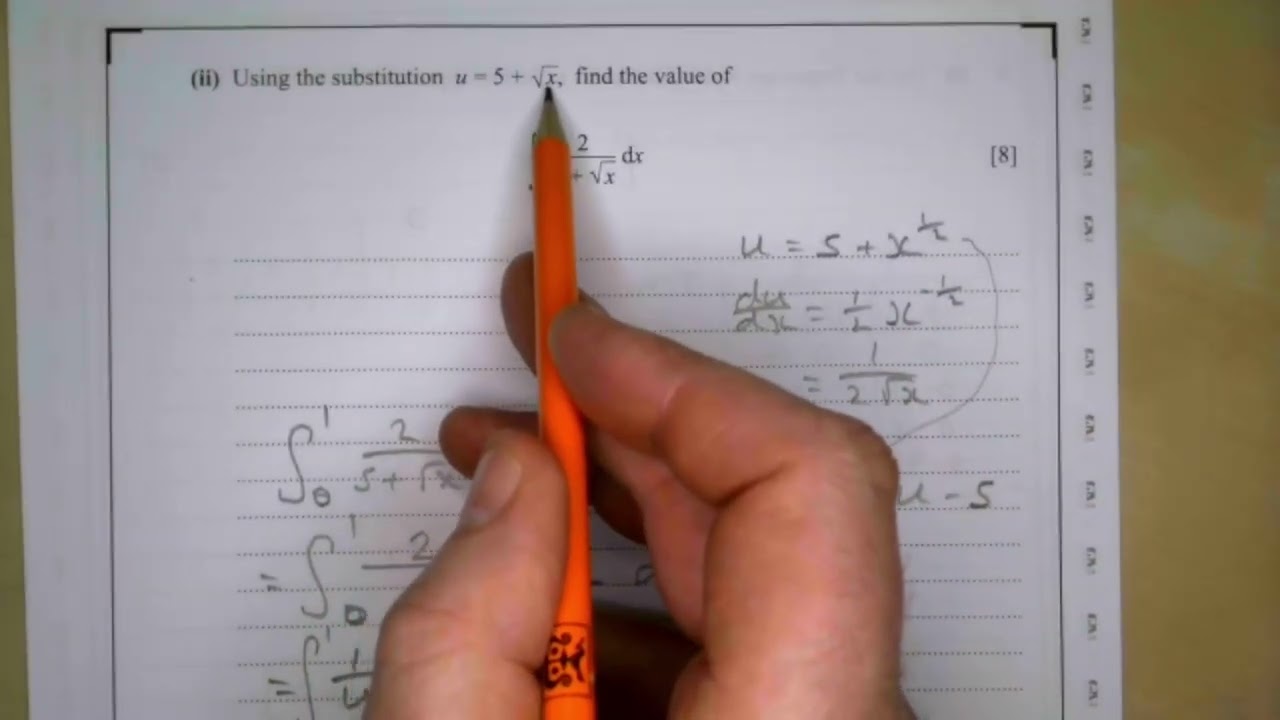 (ii) Using the substitution u = 5 + √x, find the value of
2
+ √x dx
[8]
u = 5 + x^½
du/dx = ½ x^-½
= 1/(2√x)
u - 5
∫₀¹ 2/(5 + √x
= ∫₀¹ 2
= ∫¹ 1/u